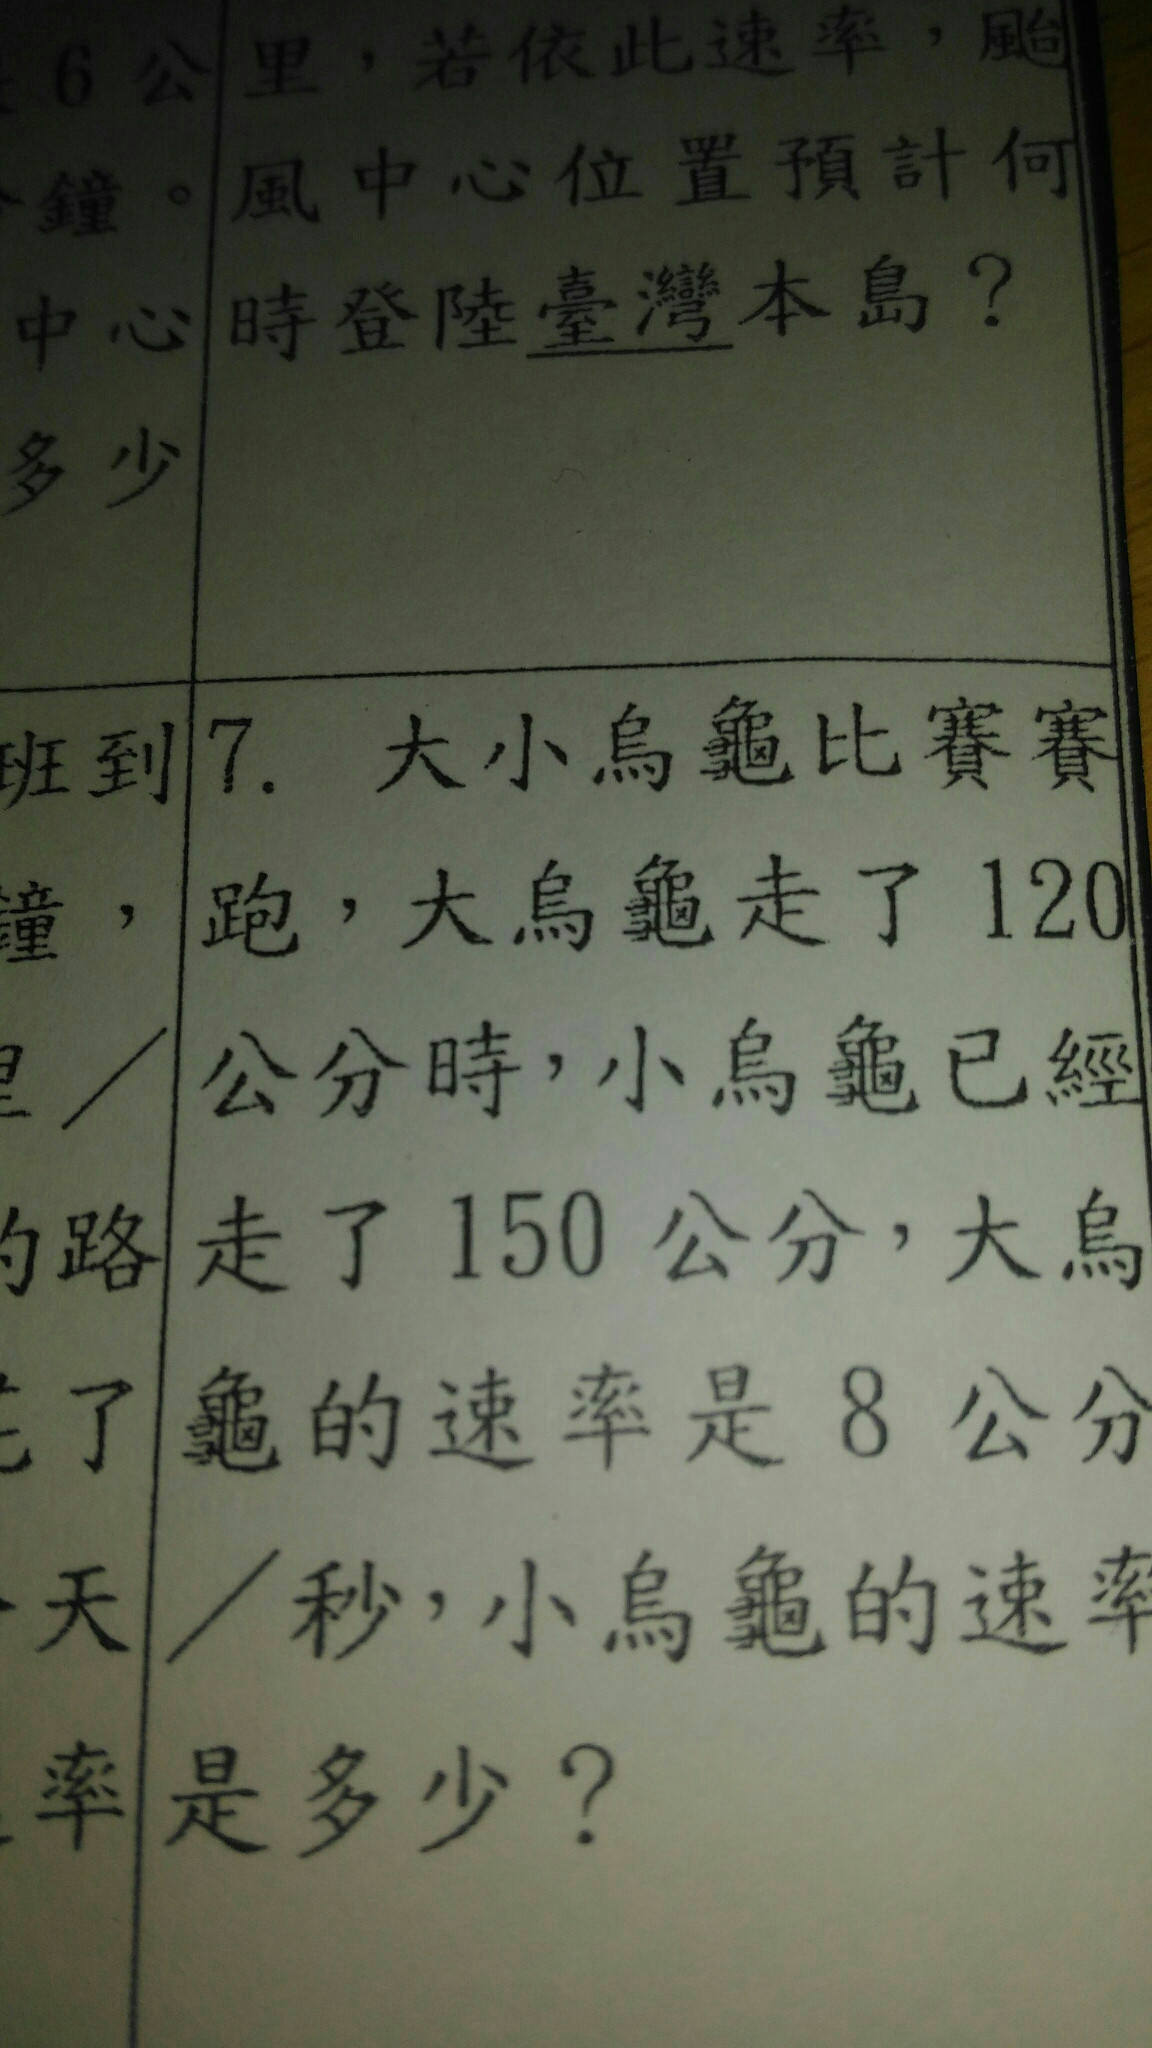 6 公
鐘。
中心
多少
里，若依此速率，颱
風中心位置預計何
時登陸臺灣本島？
班到
鐘，
／
的路
了
天
率
7. 大小烏龜比賽賽
跑，大烏龜走了 120
公分時，小烏龜已經
走了 150 公分，大烏
龜的速率是 8 公分
／秒，小烏龜的速率
是多少？